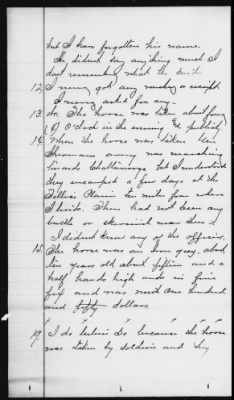 but I have forgotten his name.
He didnt say anything much. I
dont remember what he said.
12, I never got any voucher or receipt
I never asked for any.
13. No. The horse was taken about four
(4) O'clock in the evening & publicly
14, When the horse was taken Gen
Shermans army was marching
towards Chattanooga but I understood
they encamped a few days at the
Plains ten miles from where
I lived. There had not been any
battle or skirmish near there &
I didnt know any of the officers
15. The horse was an iron gray, about
ten years old about fifteen and a
half hands high and in fine
fix and was worth one hundred
and fifty dollars.
19. I do believe so because the horse
was taken by soldiers and they